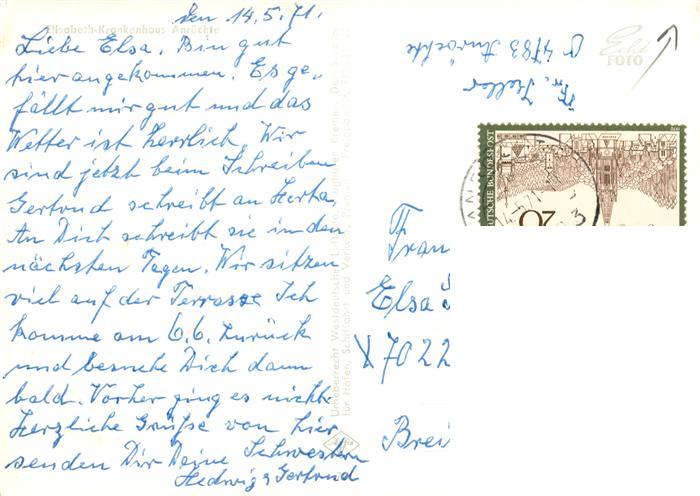 den 14.5.71.
Elisabeth-Krankenhaus Anröchte
Liebe Elsa. Bin gut
hier angekommen. Es ge-
fällt mir gut und das
Wetter ist herrlich. Wir
sind jetzt beim Schreiben
Gertrud schreibt an Herta.
An Dich schreibt sie in den
nächsten Tagen. Wir sitzen
viel auf der Terrasse Ich
komme am 6.6. zurück
und besuche Dich dann
bald. Vorher ging es nicht.
Herzliche Grüße von hier
senden Dir Deine Schwestern
Hedwig & Gertrud
Urheberrecht Westdeutscher
für Hafen, Schiffahrt und Verlag
4783 Anröchte
Echt
FOTO
DEUTSCHE BUNDESPOST
20
Frau
Elsa
7022